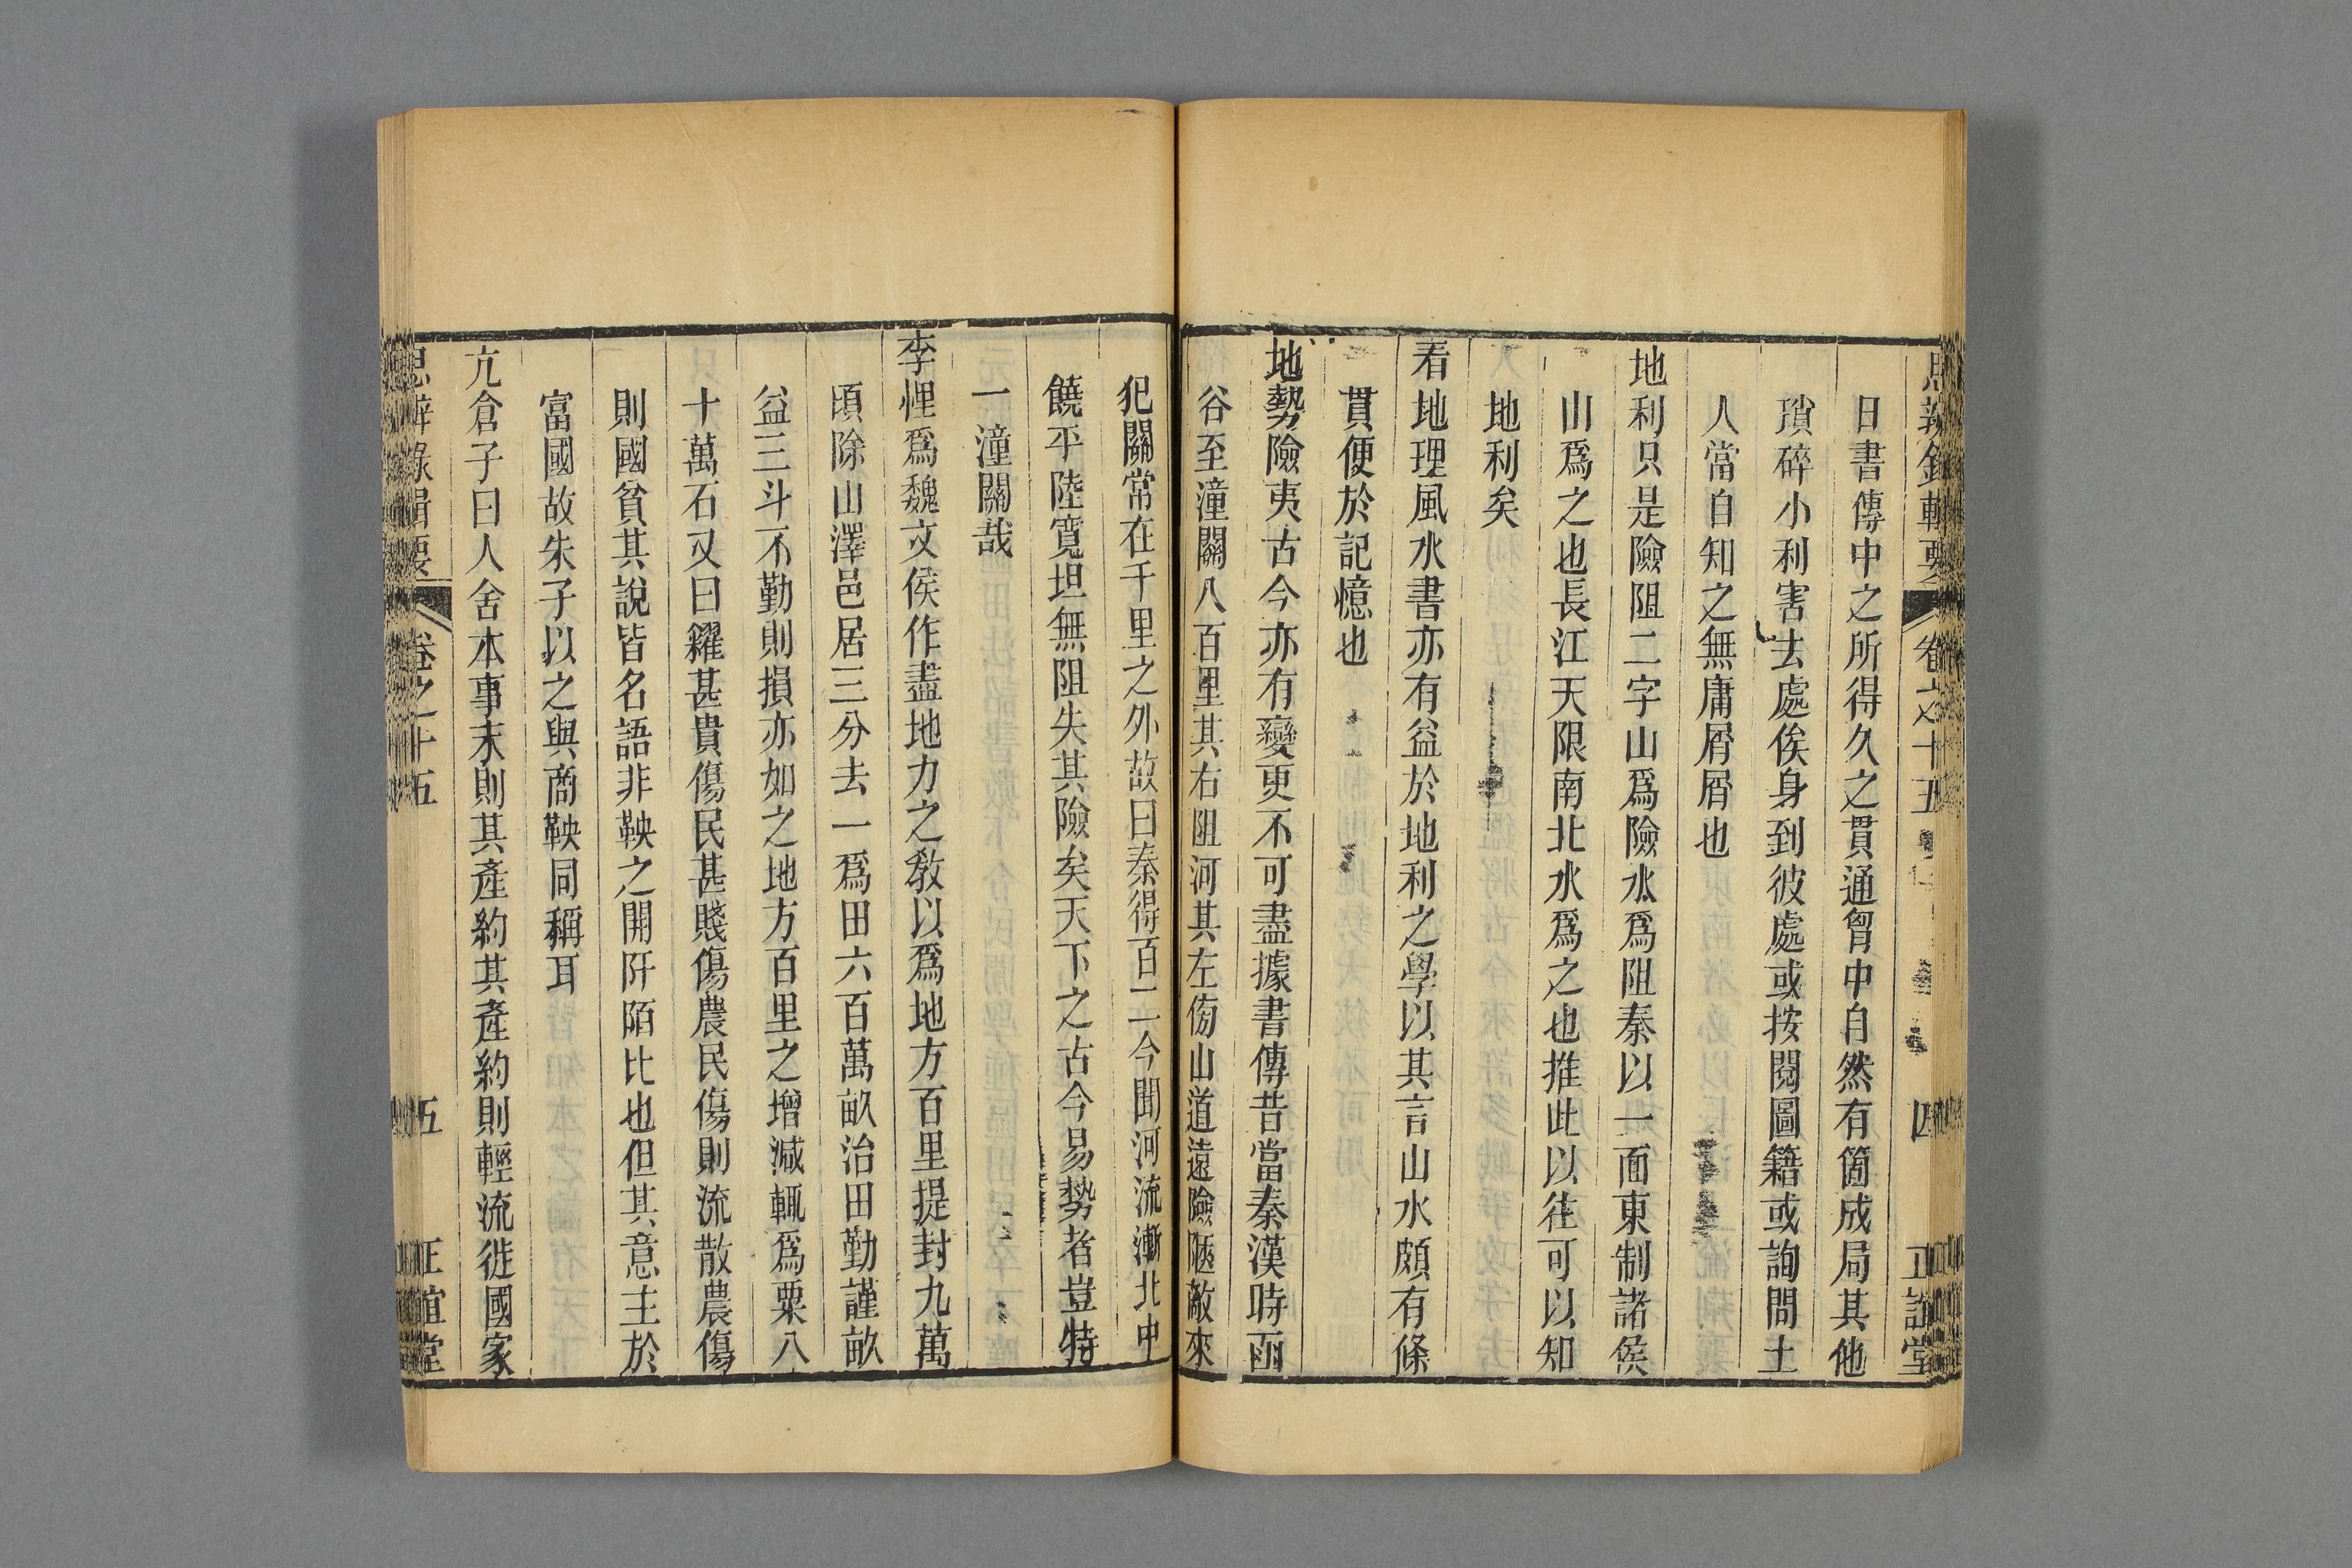 思辨錄輯要 卷之十五 四 正誼堂
日書傳中之所得久之貫通胷中自然有箇成局其他
瑣碎小利害去處俟身到彼處或按閱圖籍或詢問土
人當自知之無庸屑屑也
地利只是險阻二字山爲險水爲阻秦以一面東制諸侯
山爲之也長江天限南北水爲之也推此以往可以知
地利矣
看地理風水書亦有益於地利之學以其言山水頗有條
貫便於記憶也
地勢險夷古今亦有變更不可盡據書傳昔當秦漢時函
谷至潼關八百里其右阻河其左傍山道遠險陋敵來
犯關常在千里之外故曰秦得百二今聞河流漸北中
饒平陸寬坦無阻失其險矣天下之古今易勢者豈特
一潼關哉
李悝爲魏文侯作盡地力之敎以爲地方百里提封九萬
頃除山澤邑居三分去一爲田六百萬畝治田勤謹畝
益三斗不勤則損亦如之地方百里之增減輒爲粟八
十萬石又曰糴甚貴傷民甚賤傷農民傷則流散農傷
則國貧其說皆名語非鞅之開阡陌比也但其意主於
富國故朱子以之與商鞅同稱耳
亢倉子曰人舍本事末則其產約其產約則輕流徙國家
思辨錄輯要 卷之十五 五 正誼堂